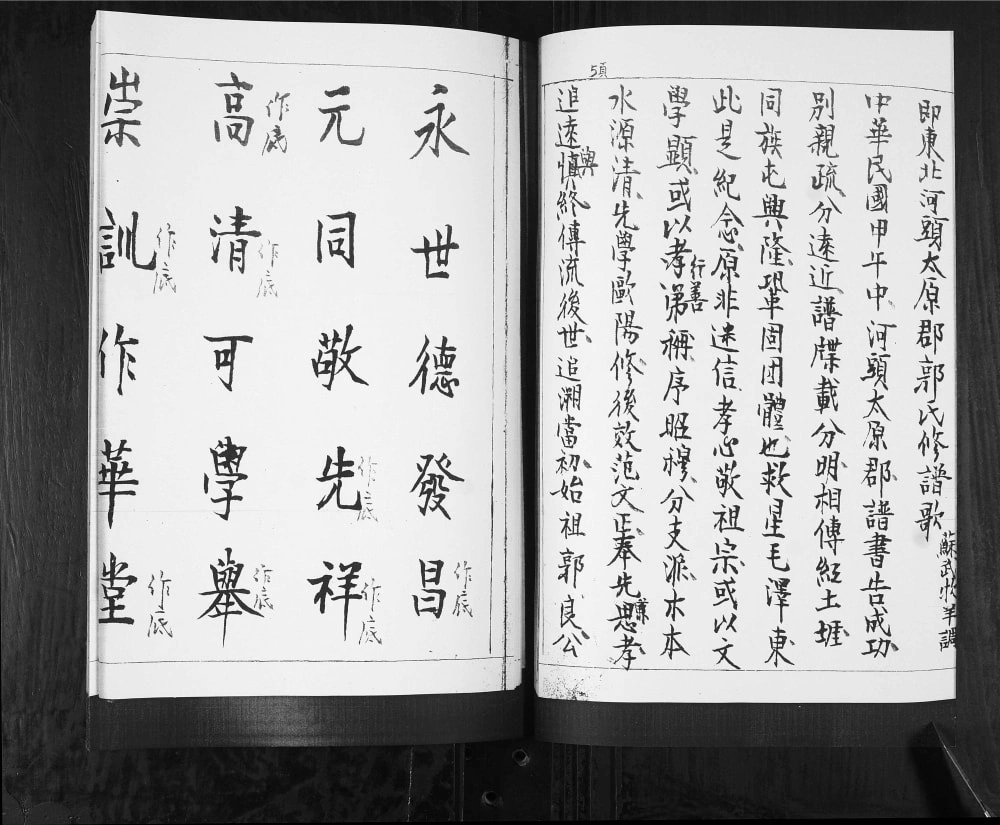 5頁
即東北河頭太原郡郭氏修譜歌
蘇武牧羊調
中華民國甲午中河頭太原郡譜書告成功
別親疏分遠近譜牒載分明相傳經土堐
同族屯興隆鞏固团體也救星毛澤東
此是紀念原非迷信孝心敬祖宗或以文
學顯或以孝弟稱序昭穆分支派木本
行善
水源清先學歐陽修後效范文正奉先思孝
追遠慎終傳流後世追溯當初始祖郭良公
與
永世德發昌
作底
元同敬先祥
作底
作底
高清可學舉
作底
作底
作底
崇訓作華堂
作底
作底